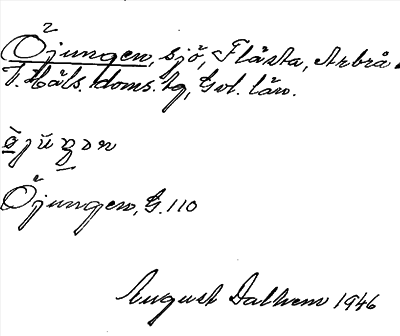 Öjungen, sjö, Flästa, Arbrå
V. Häls. doms. tg, Gvl. län.
öjŭŋən
Öjungen, G. 110
August Dalhem 1946